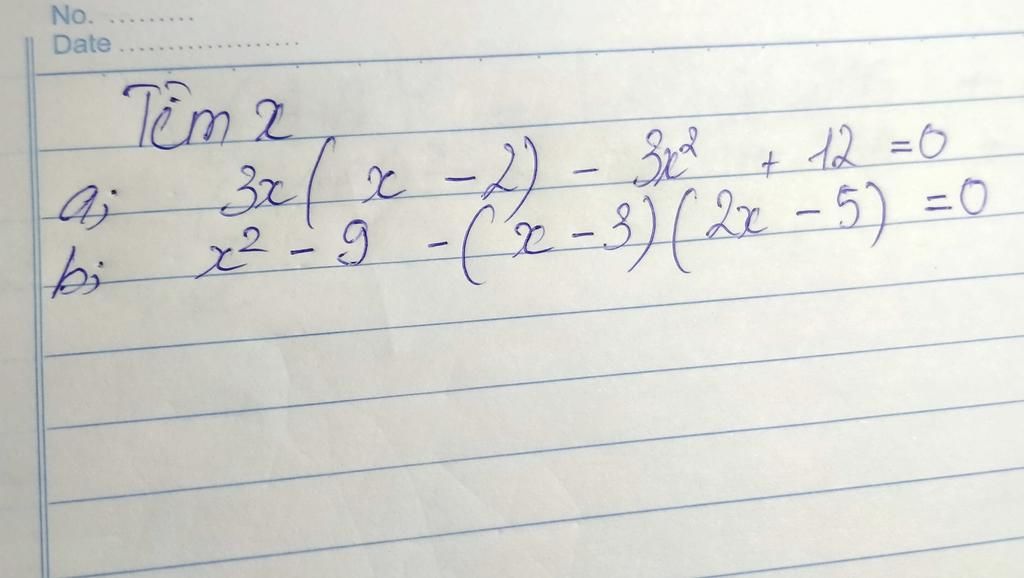 No. ..........
Date ....................
Tìm x
a; 3x( x - 2) - 3x² + 12 = 0
b; x² - 9 - ( x - 3)( 2x - 5) = 0